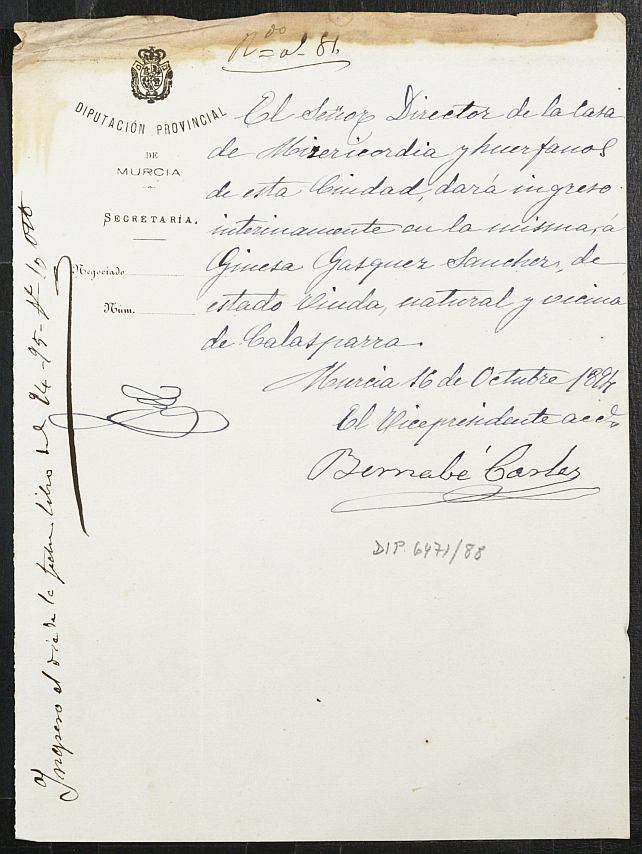 Nº al 81.
DIPUTACIÓN PROVINCIAL
DE
MURCIA
SECRETARÍA.
Negociado
Núm.
El Señor Director de la Casa
de Misericordia y huerfanos
de esta Ciudad, dará ingreso
interinamente en la misma, á
Ginesa Gasquez Sanchez, de
estado Viuda, natural y vecina
de Calasparra.
Murcia 16 de Octubre 1894
El Vicepresidente acc.
Bernabé Cortés
DIP. 6471/88
Ingreso el dia de la fecha libro del 94-95-